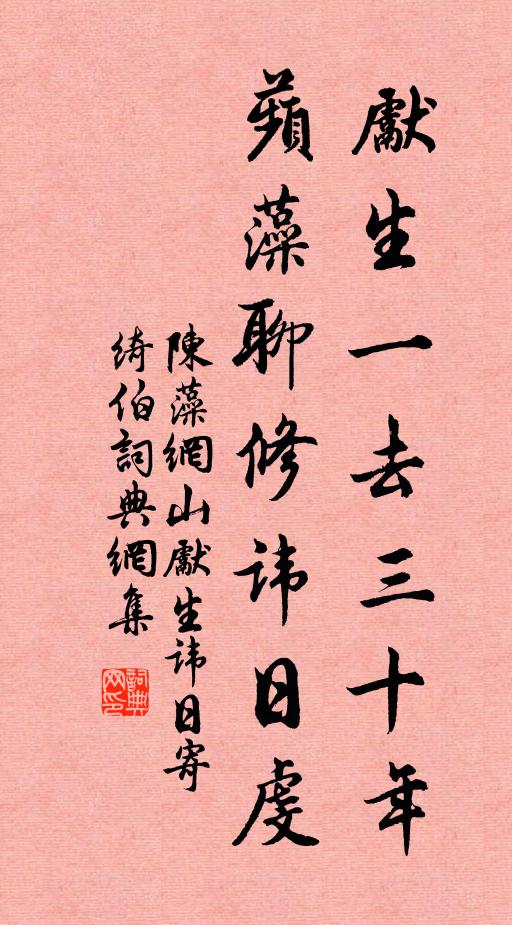 獻生一去三十年
蘋藻聊修諱日虔
陳藻網山獻生諱日寄
綺伯詞典網集
詞典网印